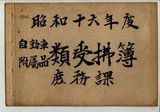 昭和十六年度
自動車附属品類受払簿
庶務課